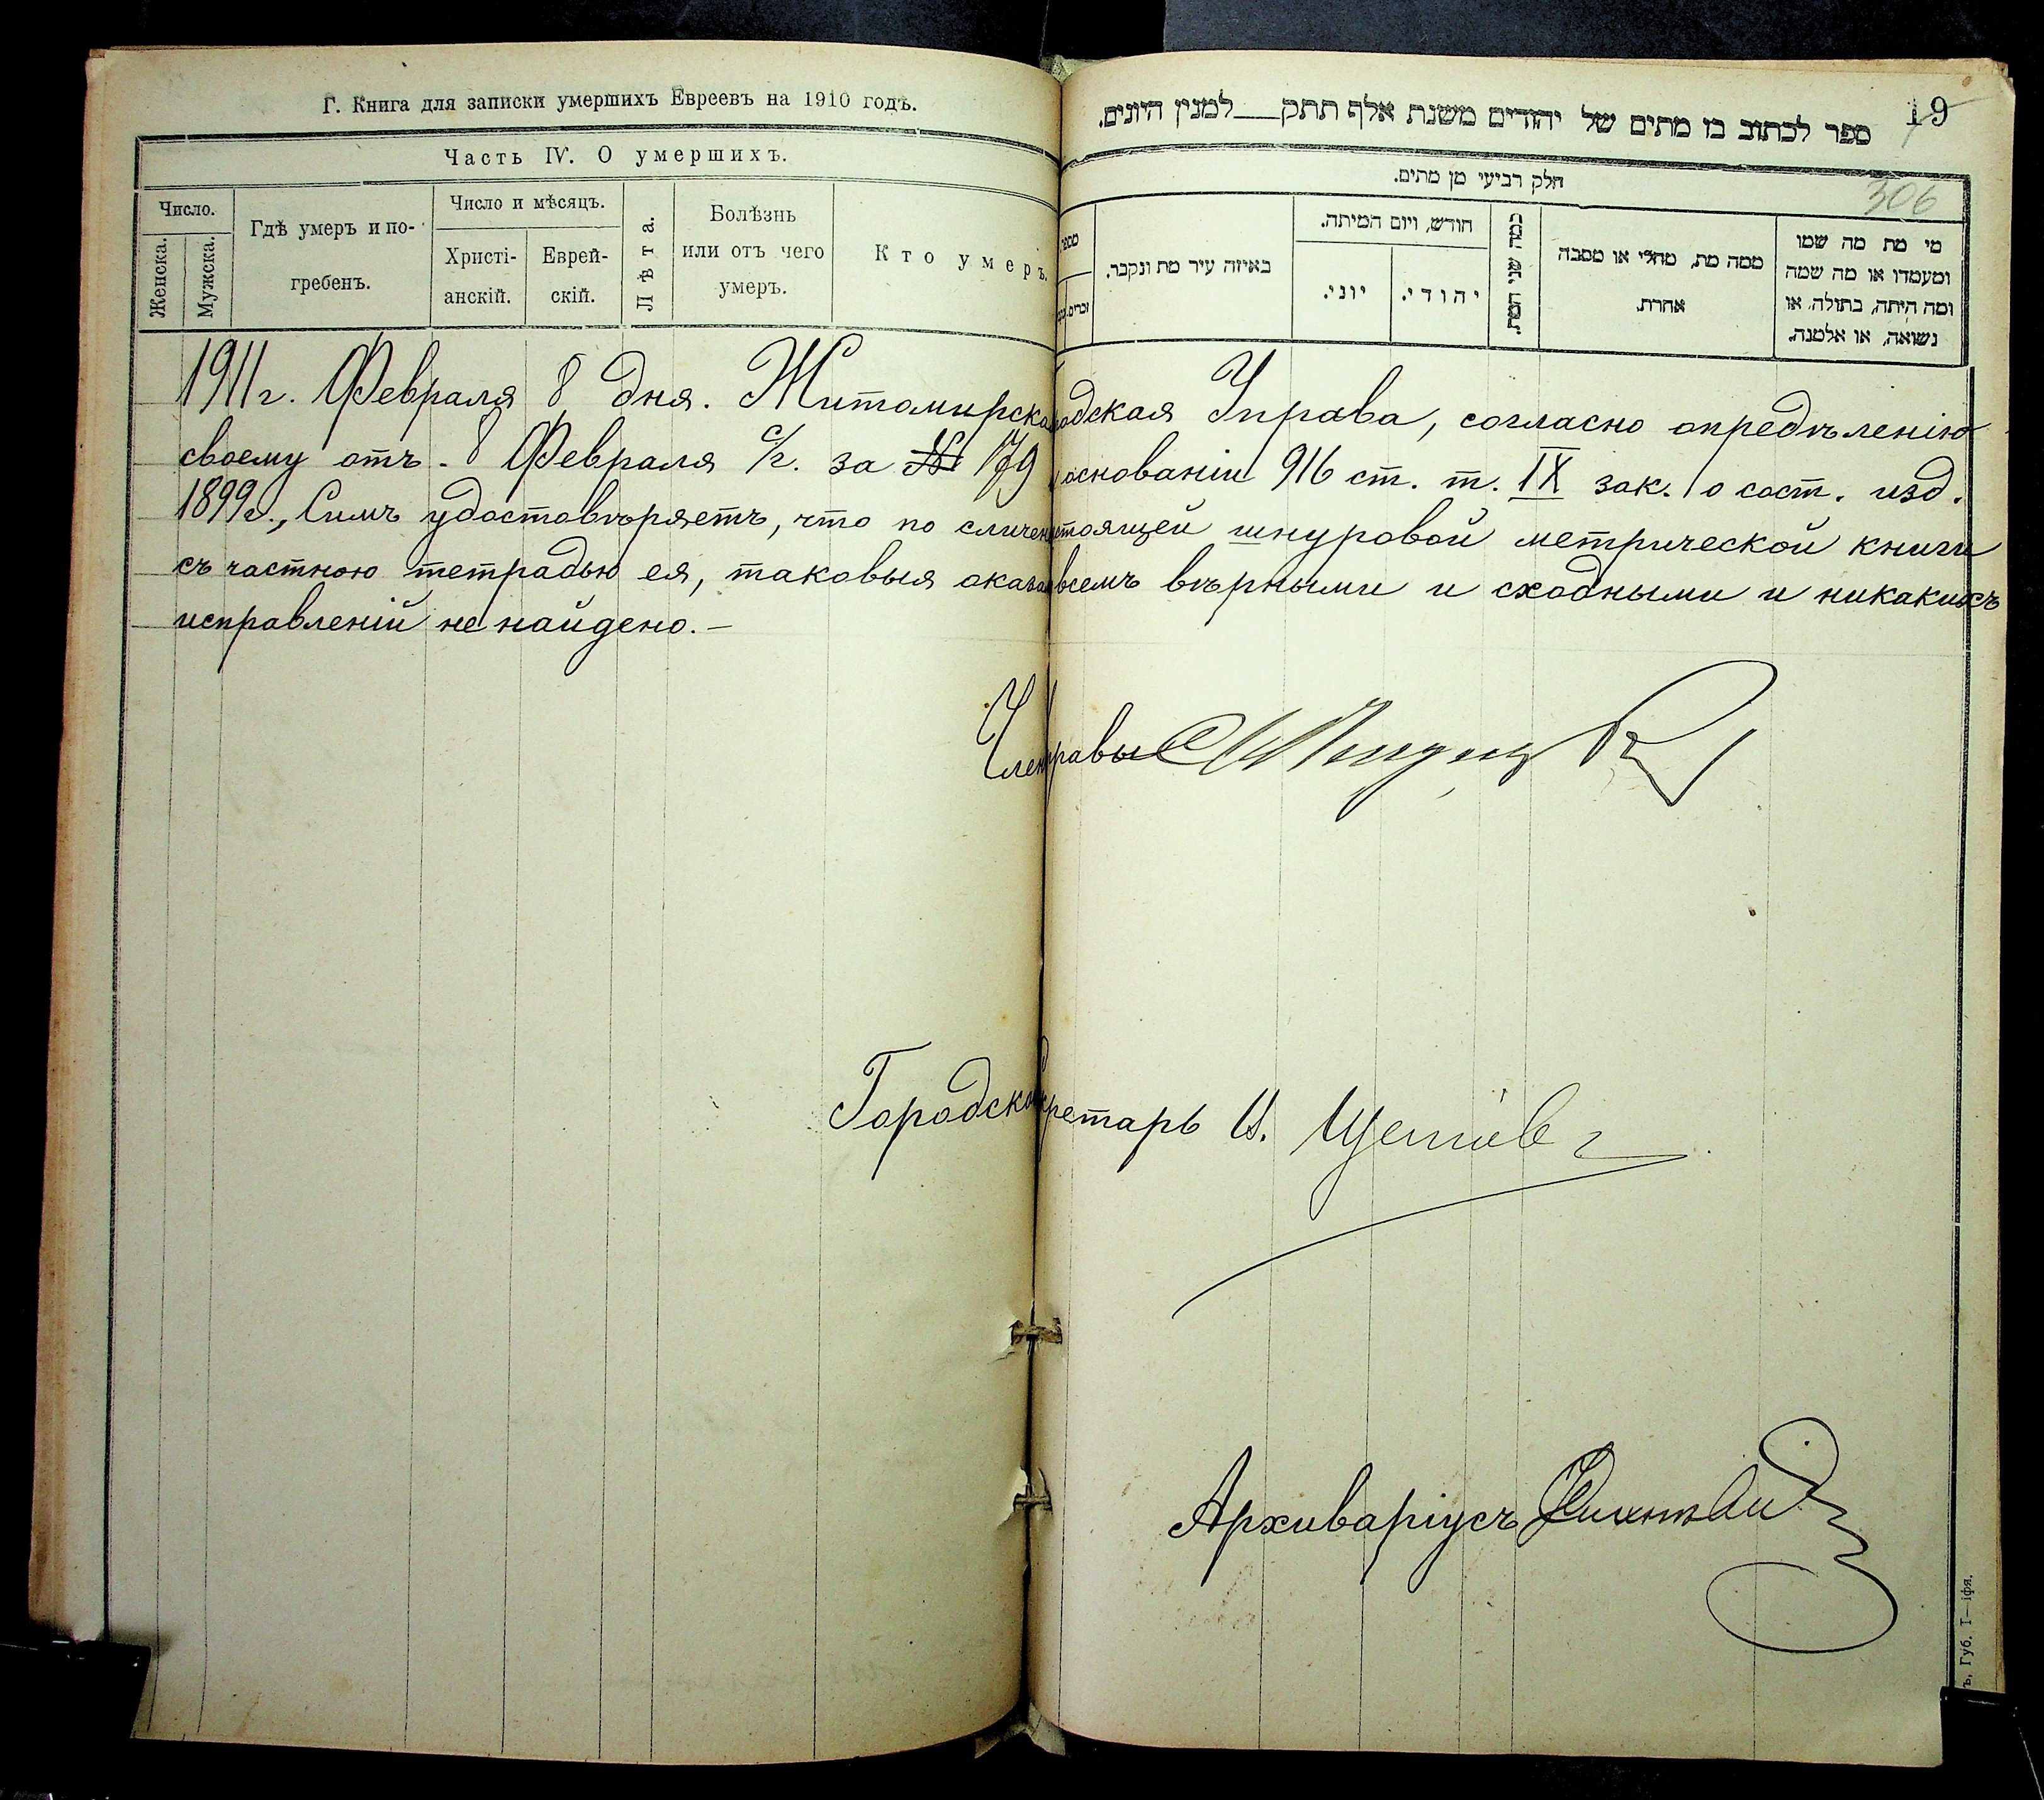 Г. Книга для записки умершихъ Евреевъ на 1910 годъ.
Часть IV. О умершихъ.
Число.
Женска.
Мужска.
Гдѣ умеръ и по-
гребенъ.
Число и мѣсяцъ.
Христі-
анскій.
Еврей-
скій.
Лѣта.
Болѣзнь
или отъ чего
умеръ.
Кто умеръ.
19
306
ספר לכתוב בו מתים של יהודים משנת אלף תתק___למנין היונים.
חלק רביעי מן מתים.
באיזה עיר מת ונקבר.
חודש, ויום המיתה.
יוני.
יהודי.
כמה שני המת.
ממה מת, מחלי או מסבה
אחרת.
מי מת מה שמו
ומעמדו או מה שמה
ומה היתה, בתולה, או
נשואה, או אלמנה.
1911 г. Февраля 8 дня. Житомирска одская Управа, согласно опредѣленію
своему отъ 8 Февраля с/г. за № 179 основаніи 916 ст. т. IX зак. о сост. изд.
1899 г., Симъ удостовѣряетъ, что по сличен стоящей шнуровой метрической книги
съ частною тетрадью ея, таковыя оказал всемъ вѣрными и сходными и никакихъ
исправленій не найдено.—
Член равы
Городско кретарь И.
Архиваріусъ
ъ, Губ. Т—іфя.